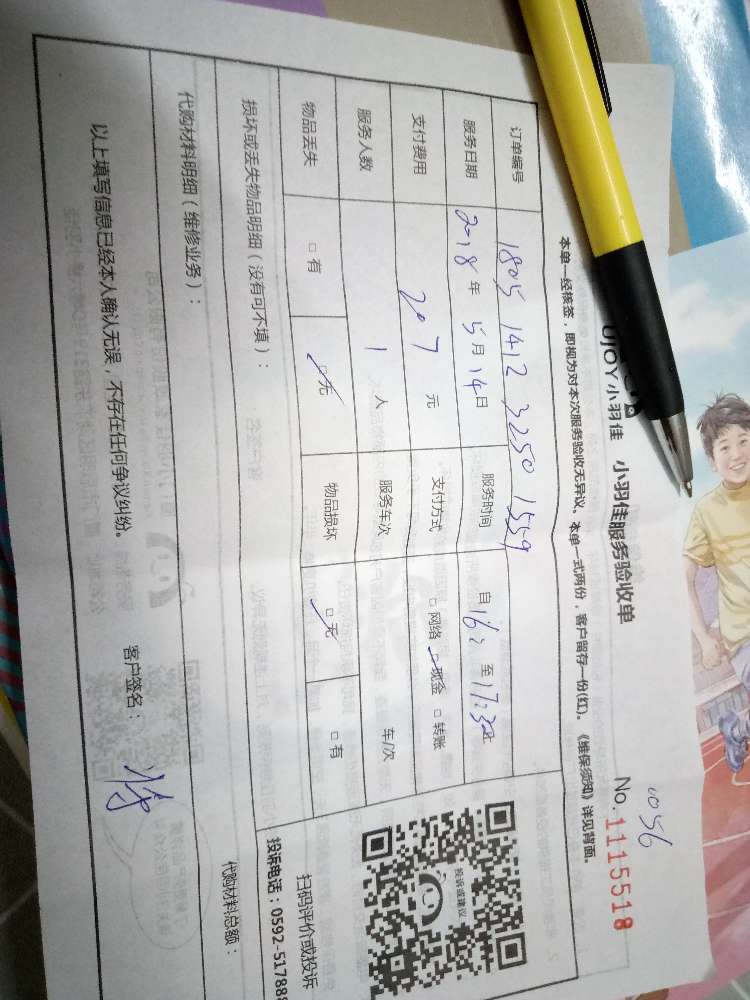 UJOY小羽佳 小羽佳服务验收单 No.1115518
0056
本单一经核签，即视为对本次服务验收无异议。本单一式两份，客户留存一份(红)。《维保须知》详见背面。
订单编号 1805 1412 3250 1559
服务日期 2018年5月14日 服务时间 自16: 至17:30止
支付费用 207元 支付方式 □网络 □现金 □转账
服务人数 1人 服务车次 车/次
物品丢失 □有 □无 物品损坏 □无 □有
损坏或丢失物品明细（没有可不填）：
代购材料明细（维修业务）：
代购材料总额：
以上填写信息已经本人确认无误，不存在任何争议纠纷。 客户签名：
投诉或建议
扫码评价或投诉
投诉电话：0592-517888